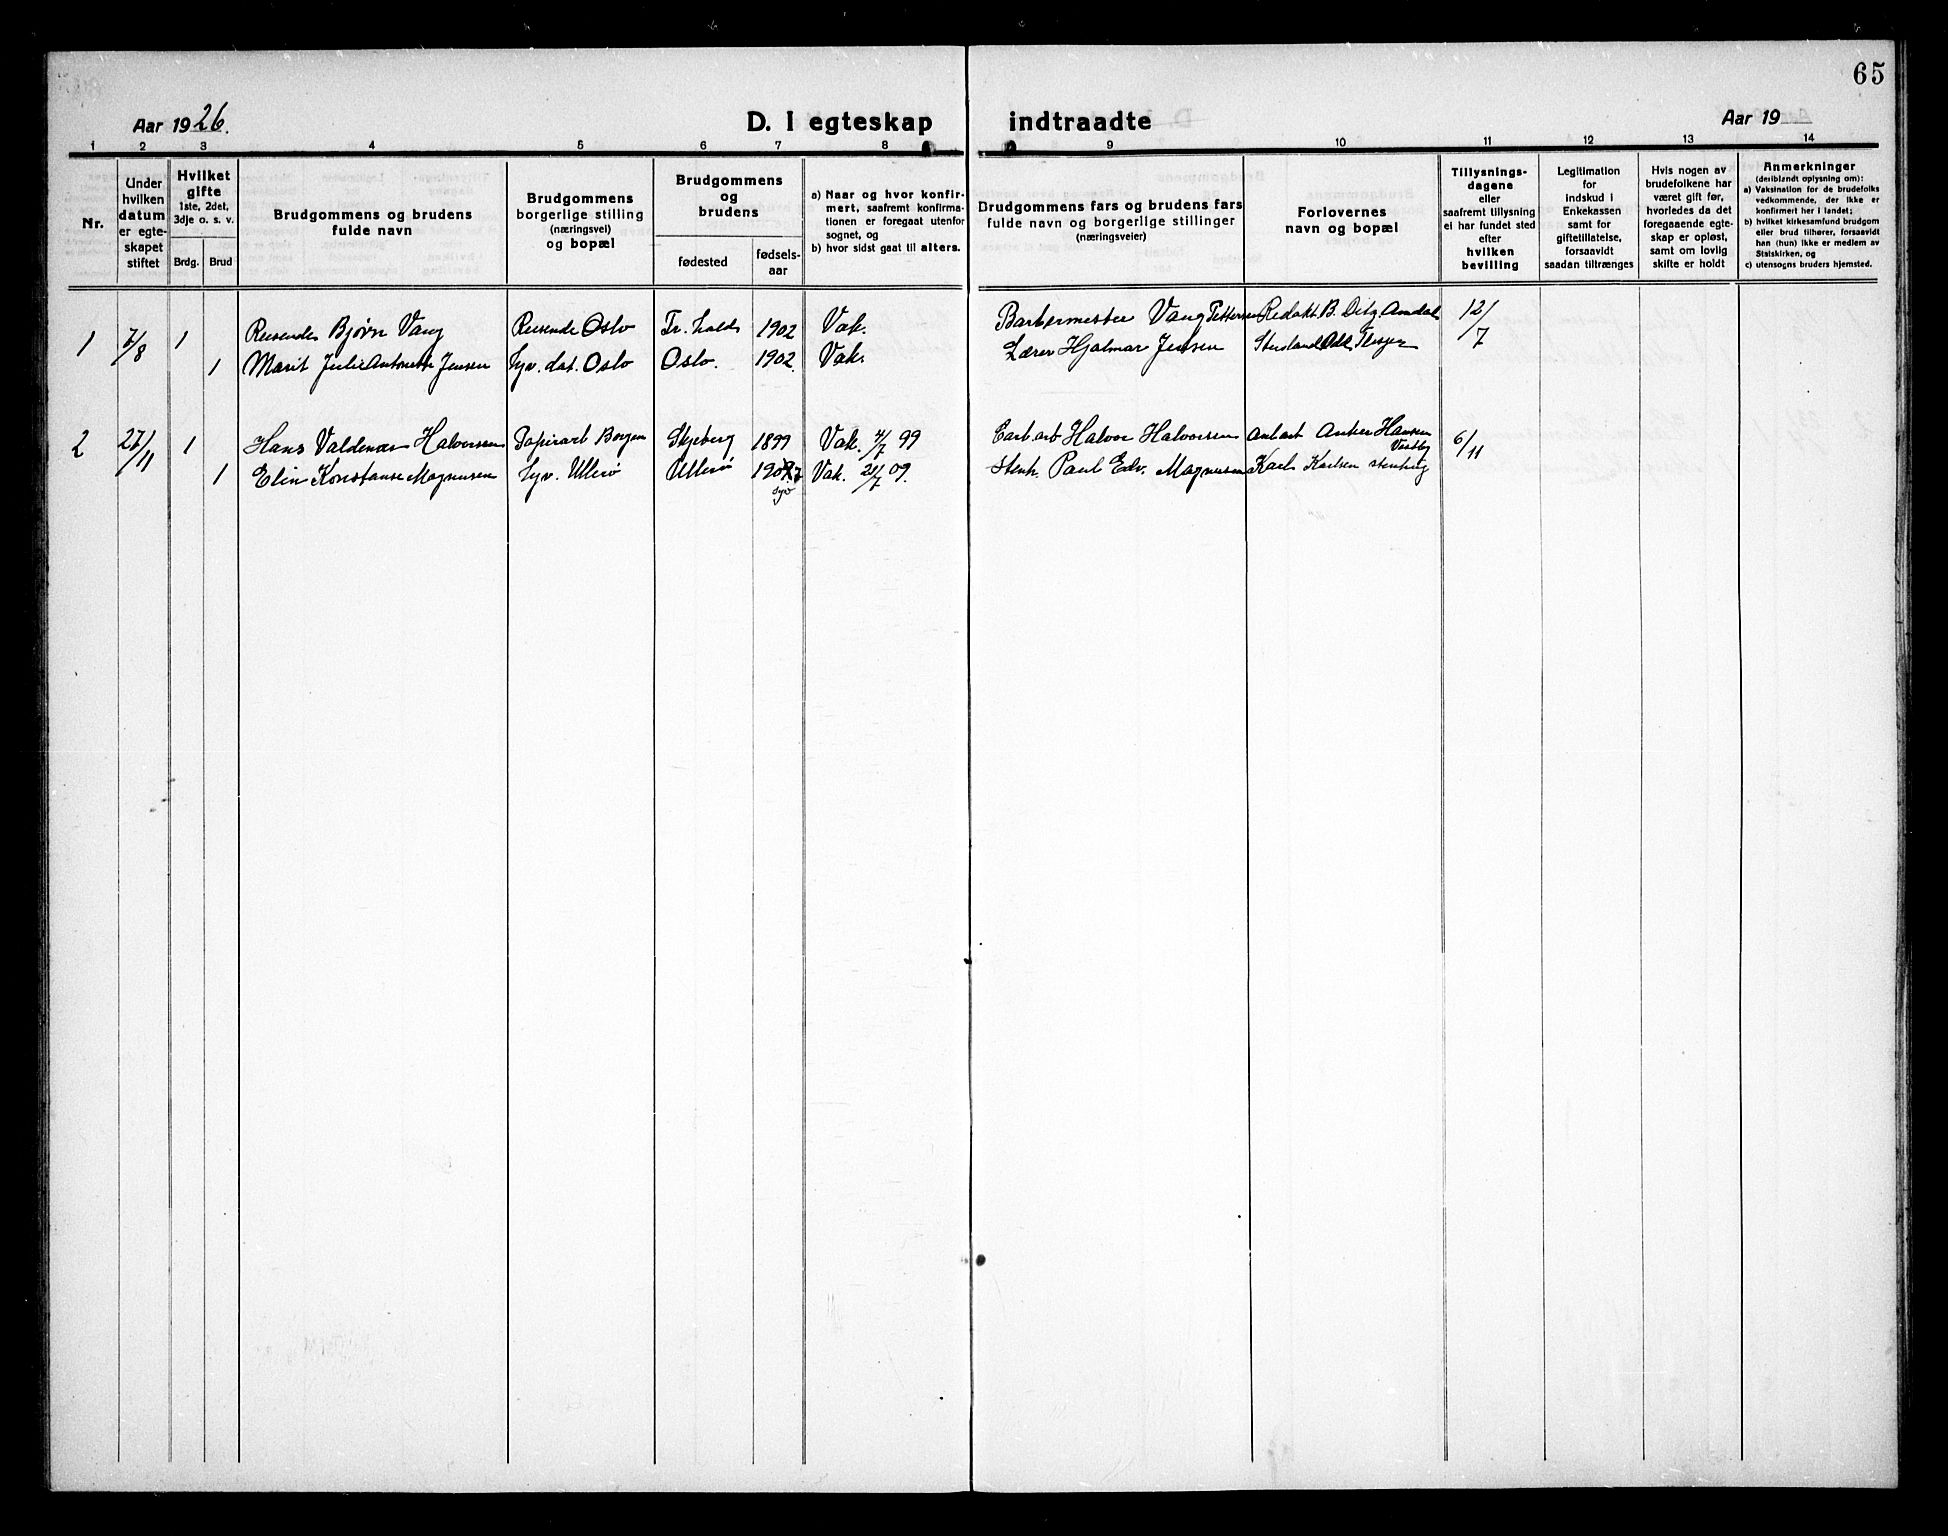 65
Aar 1926.
D. I egteskap indtraadte
Aar 19
1 2 3 4 5 6 7 8 9 10 11 12 13 14
Nr.
Under hvilken datum er egteskapet stiftet
Hvilket gifte 1ste, 2det, 3dje o. s. v.
Brdg. Brud
Brudgommens og brudens fulde navn
Brudgommens borgerlige stilling (næringsvei) og bopæl
Brudgommens og brudens
fødested
fødselsaar
a) Naar og hvor konfirmert, saafremt konfirmationen er foregaat utenfor sognet, og
b) hvor sidst gaat til alters.
Brudgommens fars og brudens fars fulde navn og borgerlige stillinger (næringsveier)
Forlovernes navn og bopæl
Tillysningsdagene eller saafremt tillysning ei har fundet sted efter hvilken bevilling
Legitimation for indskud i Enkekassen samt for giftetillatelse, forsaavidt saadan tiltrænges
Hvis nogen av brudefolkene har været gift før, hvorledes da det foregaaende egteskap er opløst, samt om lovlig skifte er holdt
Anmerkninger (deriblandt oplysning om):
a) Vaksination for de brudefolks vedkommende, der ikke er konfirmert her i landet;
b) hvilket kirkesamfund brudgom eller brud tilhører, forsaavidt han (hun) ikke er medlem av Statskirken, og
c) utensogns bruders hjemsted.
1 7/8 1 Reisende Bjørn Vang Reisende Oslo Fr. hald 1902 Vak. Barbermester Vang Pettersen Redakt. B. 12/7
1 Marit Julie Antonette Jensen Syv. dat. Oslo Oslo. 1902. Vak. Lærer Hjalmar Jensen
2 27/11 1 Hans Valdemar Halvorsen Papirarb Borgen Skjeberg 1899 Vak. 4/7 99 Halvor Halvorsen Anker Hansen 6/11
1 Elin Konstanse Magnusen Syv. Ullerø Ullerø Vak. 21/7 09. Stenh. Paul Edv. Magnusen Karl Karlsen stenhug
syv